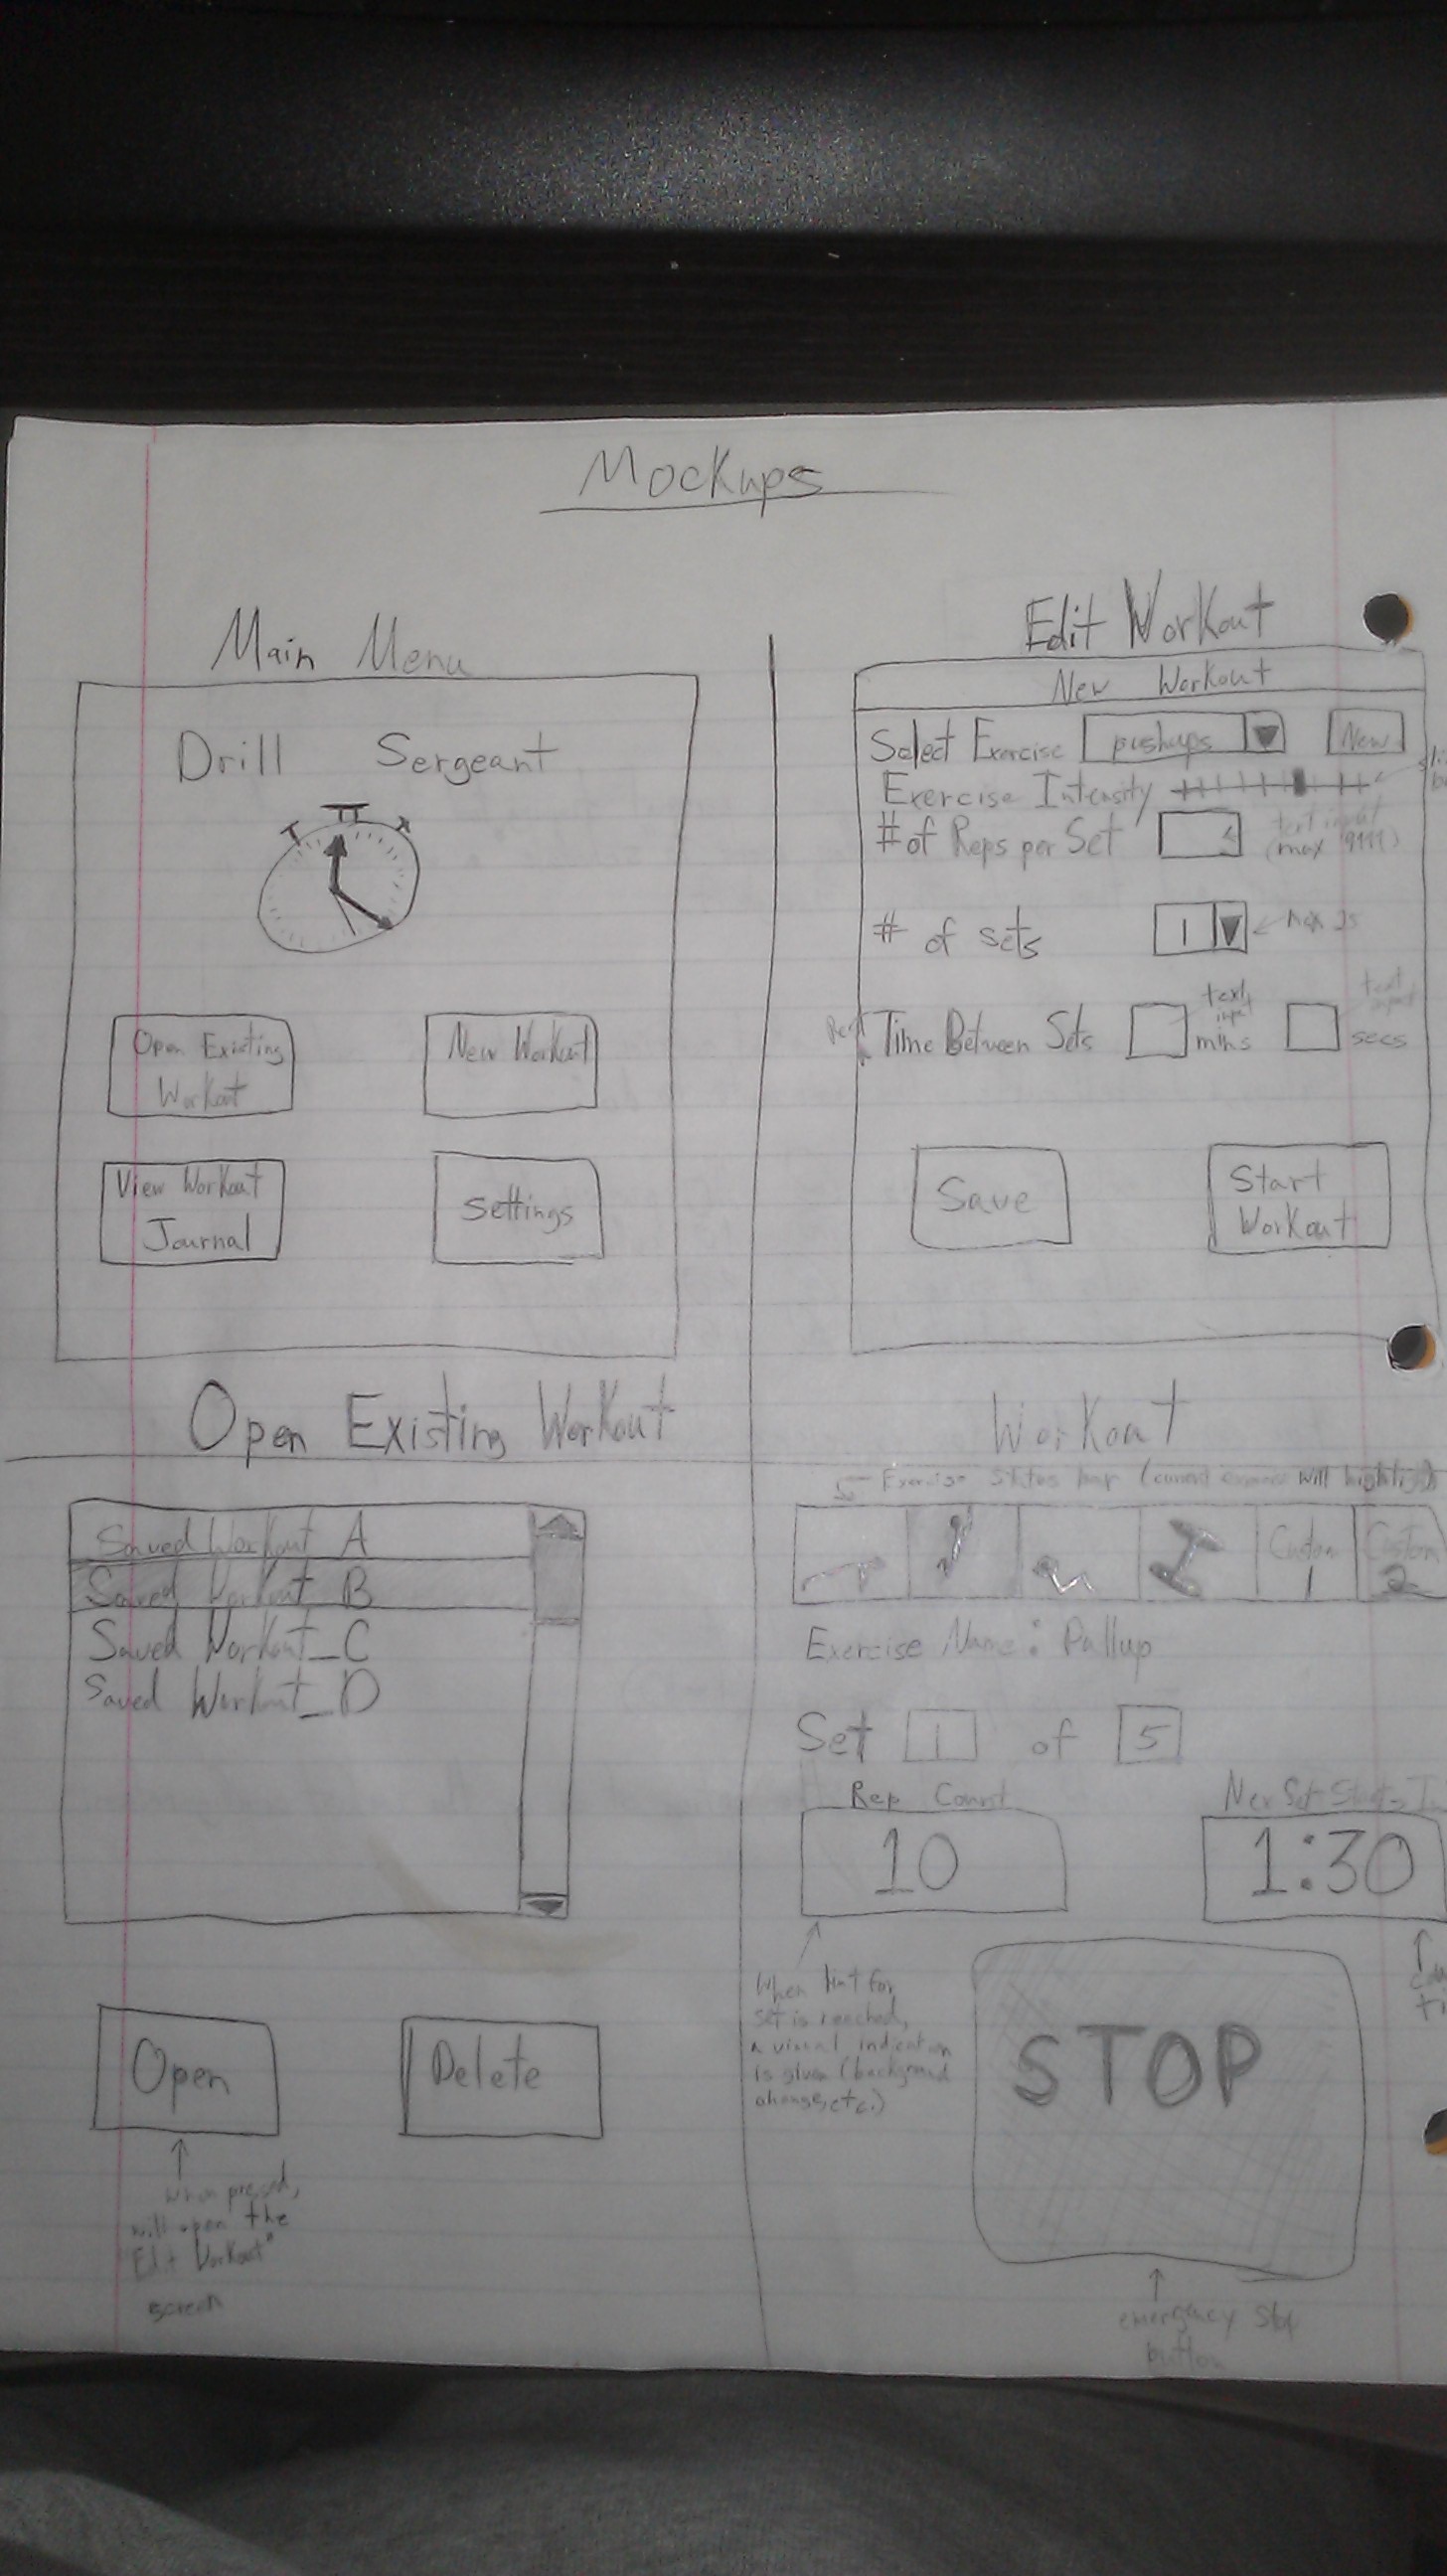 Mockups
Main Menu
Drill Sergeant
Open Existing
Workout
New Workout
View Workout
Journal
Settings
Edit Workout
New Workout
Select Exercise pushups New
Exercise Intensity
# of Reps per Set
text input
(max
# of sets 1
Time Between Sets mins secs
text
input
text
input
Save
Start
Workout
Open Existing Workout
Saved Workout_A
Saved Workout_B
Saved Workout_C
Saved Workout_D
Open
Delete
when pressed,
will open the
"Edit Workout"
screen
Workout
Exercise status bar (current exercise will highlight)
Custom
1
Custom
2
Exercise Name: Pullup
Set 1 of 5
Rep Count
10
Nex Set Starts In
1:30
When limit for
set is reached,
a visual indication
is given (background
change, etc.)
STOP
emergency stop
button